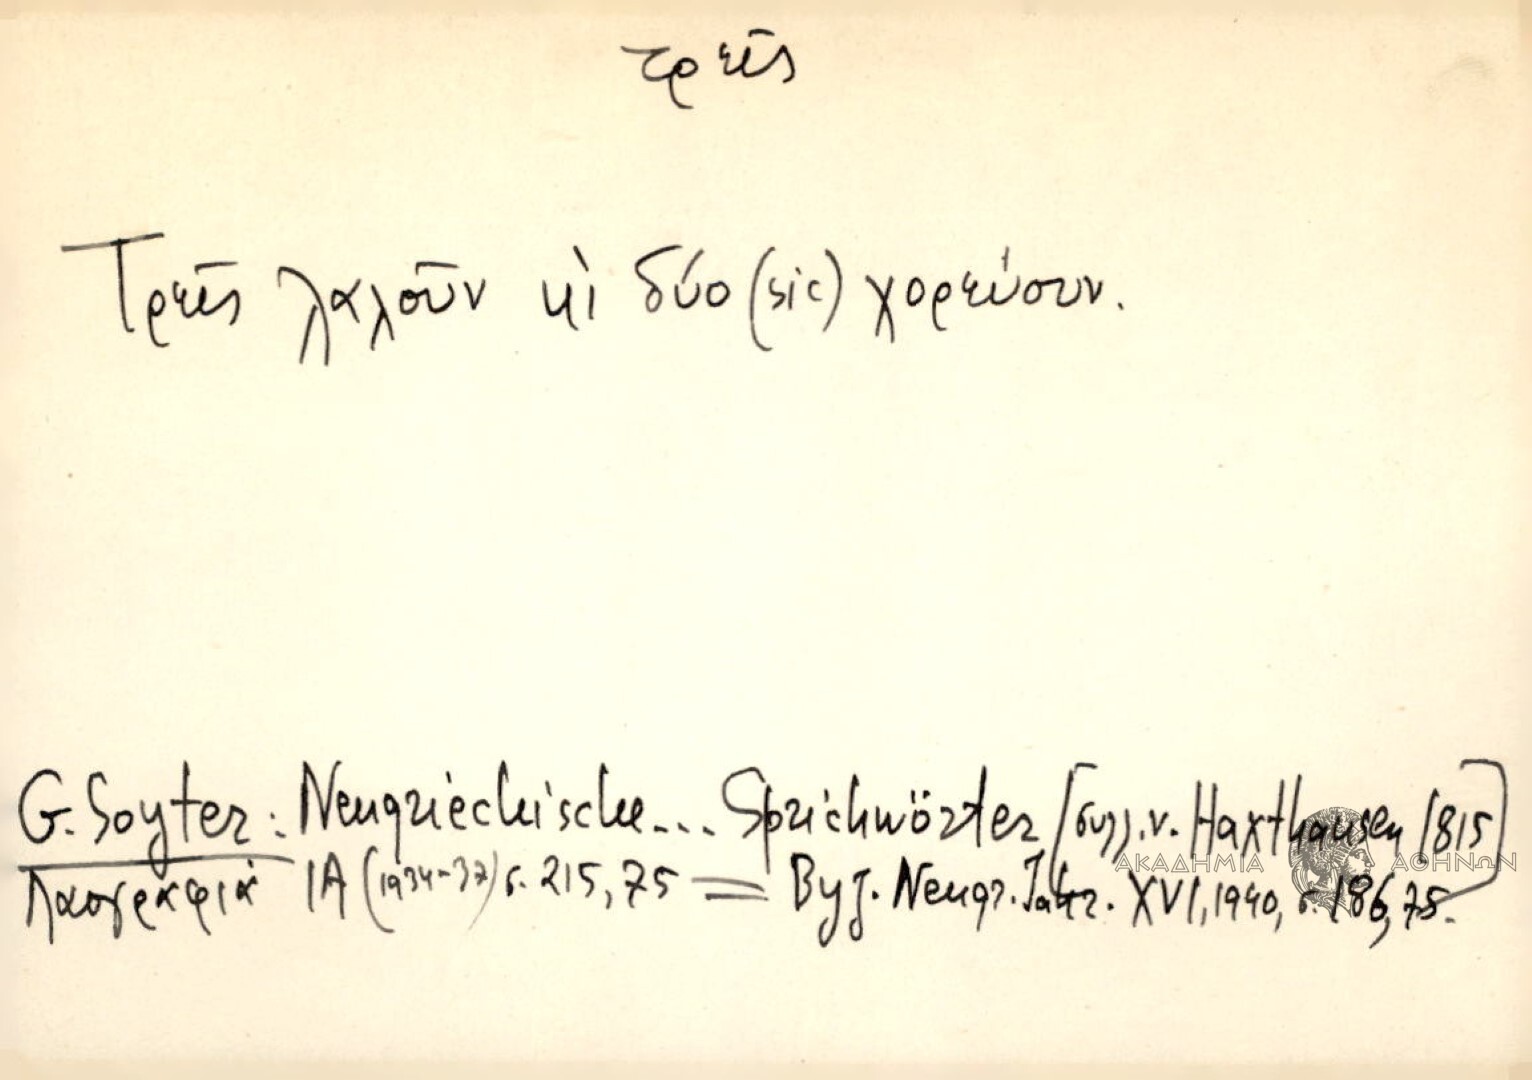 τρεῖς
Τρεῖς λαλοῦν κὶ δύο (sic) χορεύουν.
G. Soyter: Neugriechische... Sprichwörter [συλλ. v. Haxthausen 1815]
Λαογραφία ΙΑ (1934-37) σ. 215, 75 = Byz. Neugr. Jahr. XVI, 1940, σ. 186, 75.
ΑΚΑΔΗΜΙΑ ΑΘΗΝΩΝ